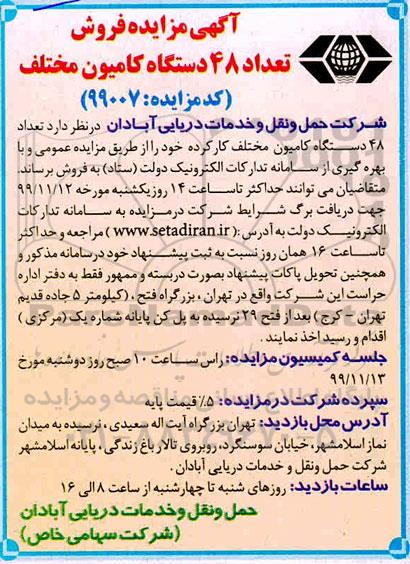 آگهی مزایده فروش
تعداد ۴۸ دستگاه کامیون مختلف
(کد مزایده: ۹۹۰۰۷)
شرکت حمل ونقل وخدمات دریایی آبادان درنظر دارد تعداد
۴۸ دستگاه کامیون مختلف کارکرده خود را از طریق مزایده عمومی و با
بهره گیری از سامانه تدارکات الکترونیک دولت (ستاد) به فروش برساند.
متقاضیان می توانند حداکثر تاساعت ۱۴ روزیکشنبه مورخه ۹۹/۱۱/۱۲
جهت دریافت برگ شرایط شرکت درمزایده به سامانه تدارکات
الکترونیک دولت به آدرس :( www.setadiran.ir ) مراجعه و حداکثر
تاساعت ۱۶ همان روز نسبت به ثبت پیشنهاد خود درسامانه مذکور و
همچنین تحویل پاکات پیشنهاد بصورت دربسته و ممهور فقط به دفتر اداره
حراست این شرکت واقع در تهران ، بزرگراه فتح ، (کیلومتر ۵ جاده قدیم
تهران - کرج) بعد از فتح ۲۹ نرسیده به پل کن پایانه شماره یک (مرکزی)
اقدام و رسید اخذ نمایند .
جلسه کمیسیون مزایده: راس ساعت ۱۰ صبح روز دوشنبه مورخ
۹۹/۱۱/۱۳
سپرده شرکت در مزایده: ۵٪ قیمت پایه
آدرس محل بازدید: تهران بزرگراه آیت اله سعیدی ، نرسیده به میدان
نماز اسلامشهر، خیابان سوسنگرد، روبروی تالار باغ زندگی ، پایانه اسلامشهر
شرکت حمل ونقل و خدمات دریایی آبادان .
ساعات بازدید: روزهای شنبه تا چهارشنبه از ساعت ۸ الی ۱۶
حمل ونقل و خدمات دریایی آبادان
(شرکت سهامی خاص)